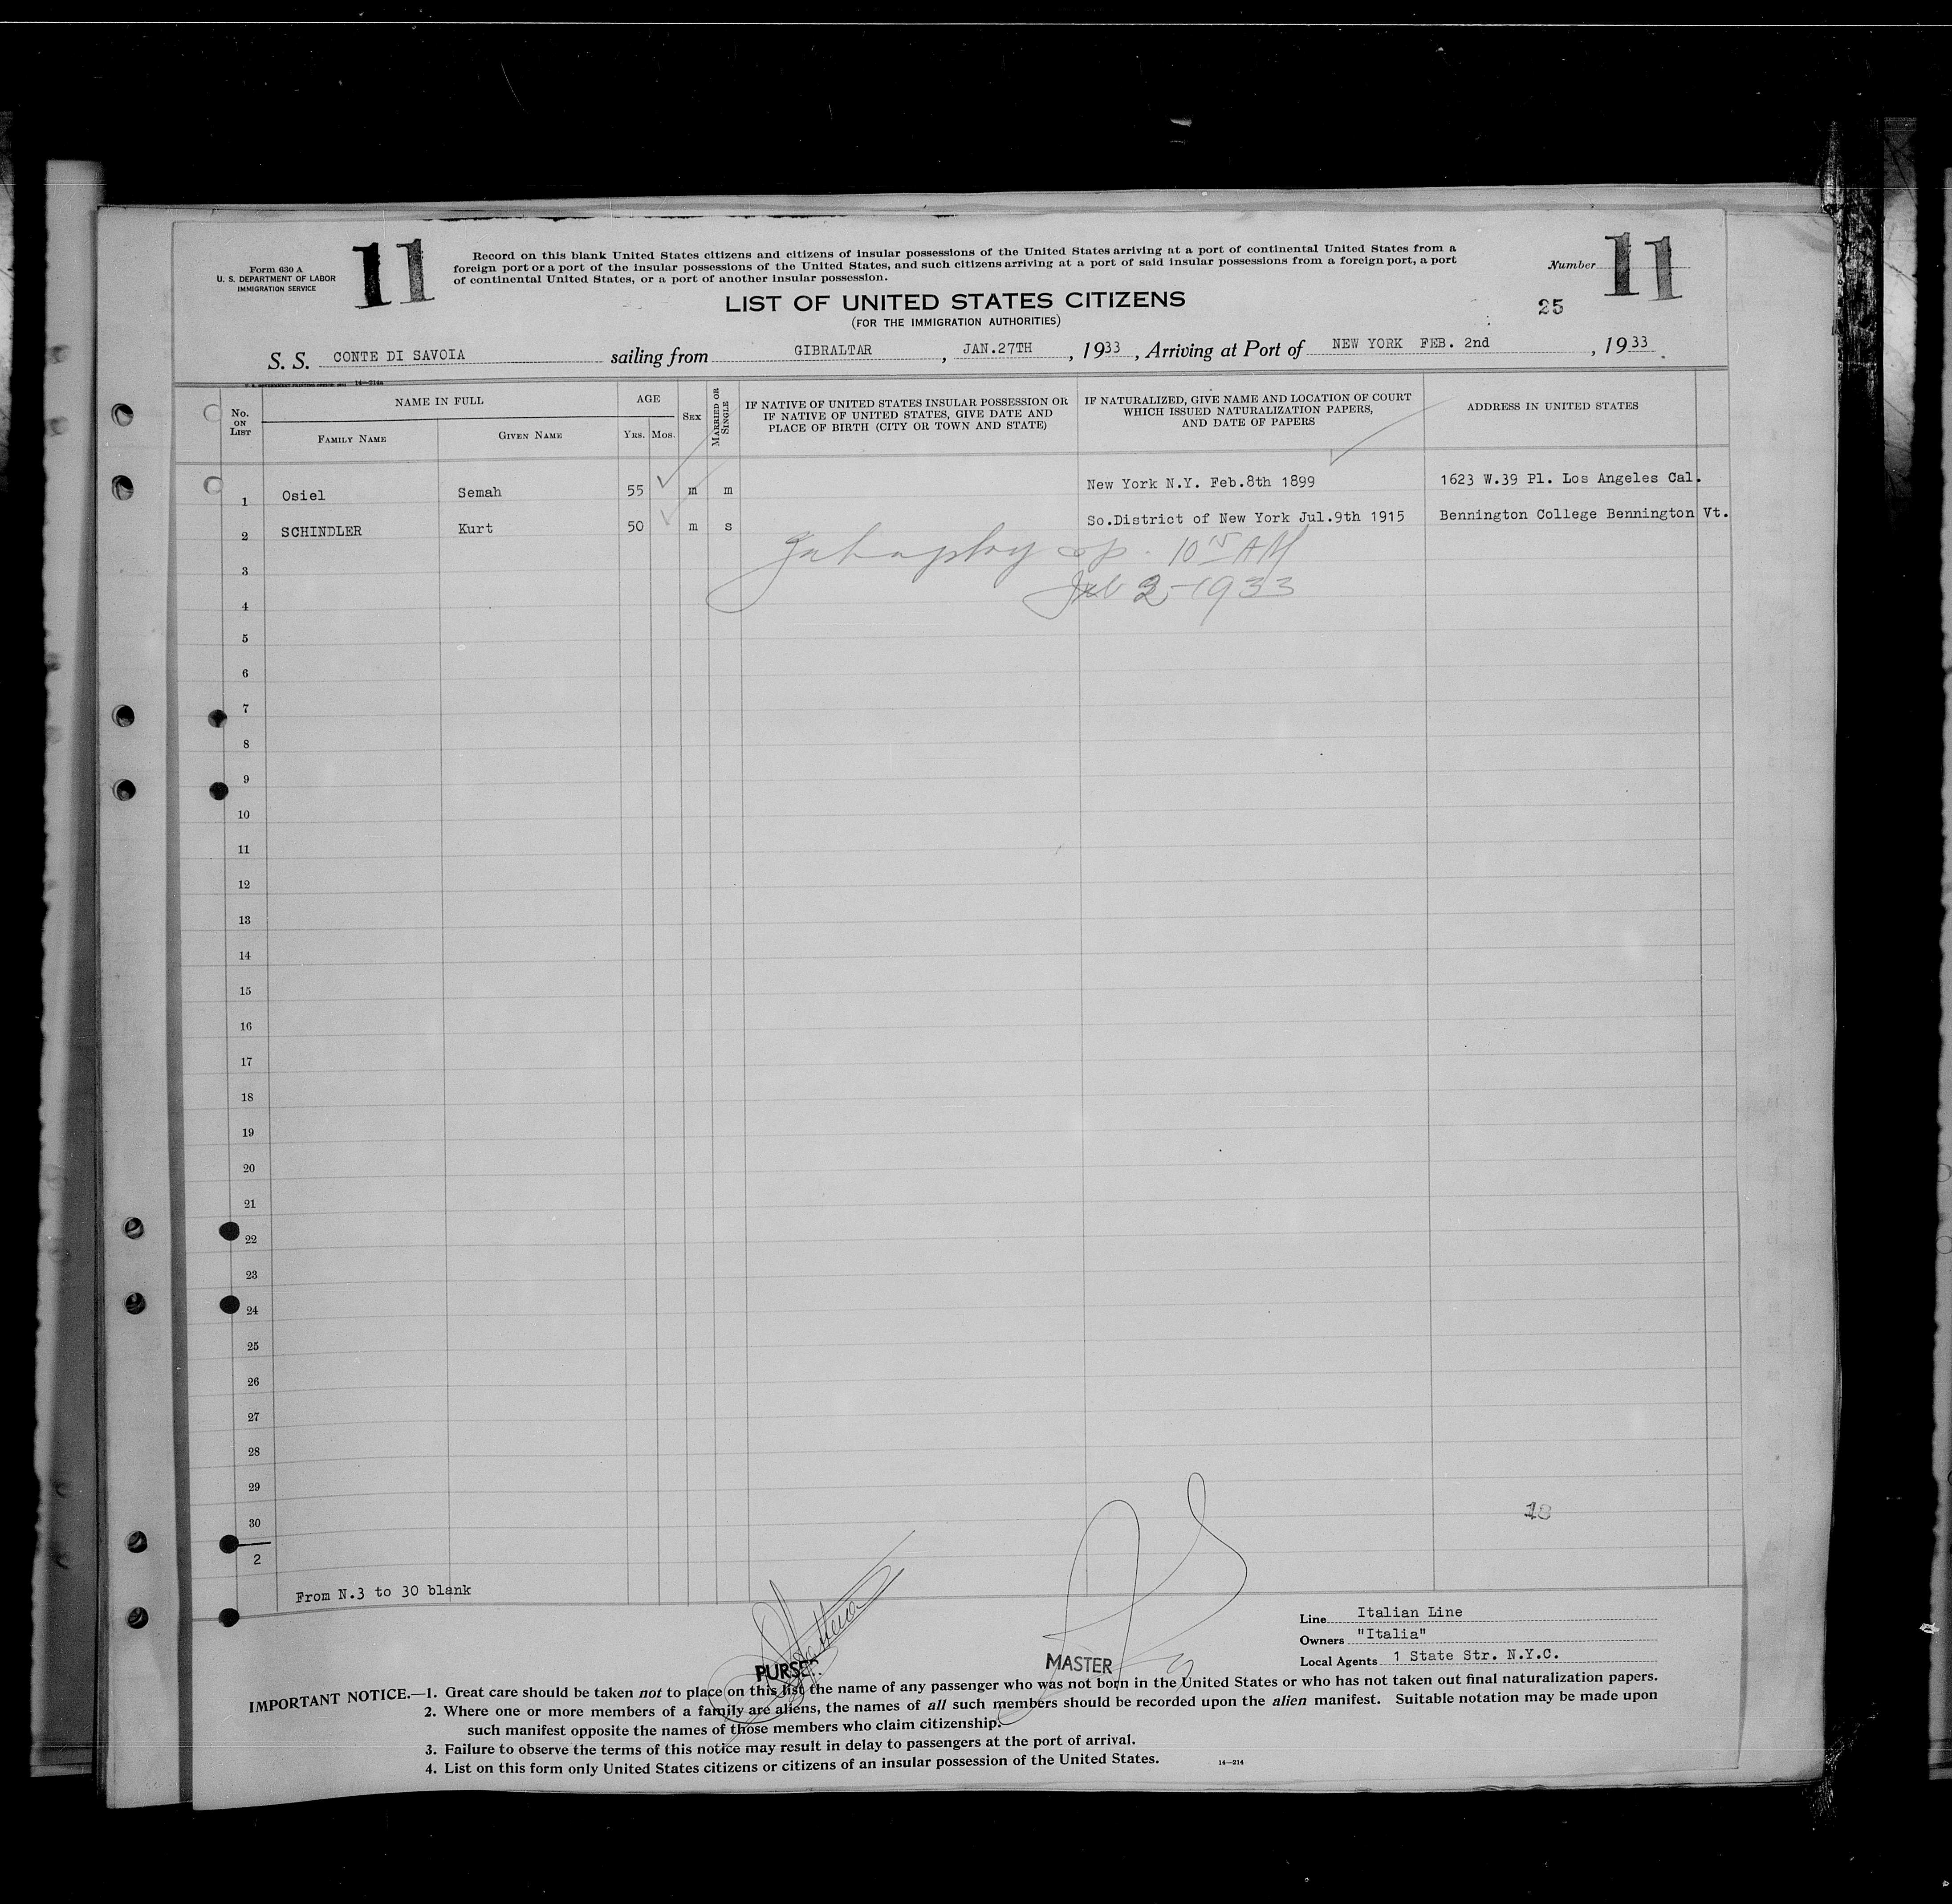 Form 630 A
U. S. DEPARTMENT OF LABOR
IMMIGRATION SERVICE
11
Record on this blank United States citizens and citizens of insular possessions of the United States arriving at a port of continental United States from a
foreign port or a port of the insular possessions of the United States, and such citizens arriving at a port of said insular possessions from a foreign port, a port
of continental United States, or a port of another insular possession.
Number 11
LIST OF UNITED STATES CITIZENS
(FOR THE IMMIGRATION AUTHORITIES)
25
S. S. CONTE DI SAVOIA sailing from GIBRALTAR, JAN.27TH, 1933, Arriving at Port of NEW YORK FEB. 2nd, 1933.
14—214a
No. ON LIST
NAME IN FULL
FAMILY NAME
GIVEN NAME
AGE
YRS. MOS.
SEX
MARRIED OR SINGLE
IF NATIVE OF UNITED STATES INSULAR POSSESSION OR
IF NATIVE OF UNITED STATES, GIVE DATE AND
PLACE OF BIRTH (CITY OR TOWN AND STATE)
IF NATURALIZED, GIVE NAME AND LOCATION OF COURT
WHICH ISSUED NATURALIZATION PAPERS,
AND DATE OF PAPERS
ADDRESS IN UNITED STATES
1 Osiel Semah 55 m m New York N.Y. Feb.8th 1899 1623 W.39 Pl. Los Angeles Cal.
2 SCHINDLER Kurt 50 m s So.District of New York Jul.9th 1915 Bennington College Bennington Vt.
10 15 AM
3
Feb 2-1933
4
5
6
7
8
9
10
11
12
13
14
15
16
17
18
19
20
21
22
23
24
25
26
27
28
29
18
30
2
From N.3 to 30 blank
Line Italian Line
Owners "Italia"
Local Agents 1 State Str. N.Y.C.
PURSER.
MASTER
IMPORTANT NOTICE.—1. Great care should be taken not to place on this list the name of any passenger who was not born in the United States or who has not taken out final naturalization papers.
2. Where one or more members of a family are aliens, the names of all such members should be recorded upon the alien manifest. Suitable notation may be made upon
such manifest opposite the names of those members who claim citizenship.
3. Failure to observe the terms of this notice may result in delay to passengers at the port of arrival.
4. List on this form only United States citizens or citizens of an insular possession of the United States.
14—214